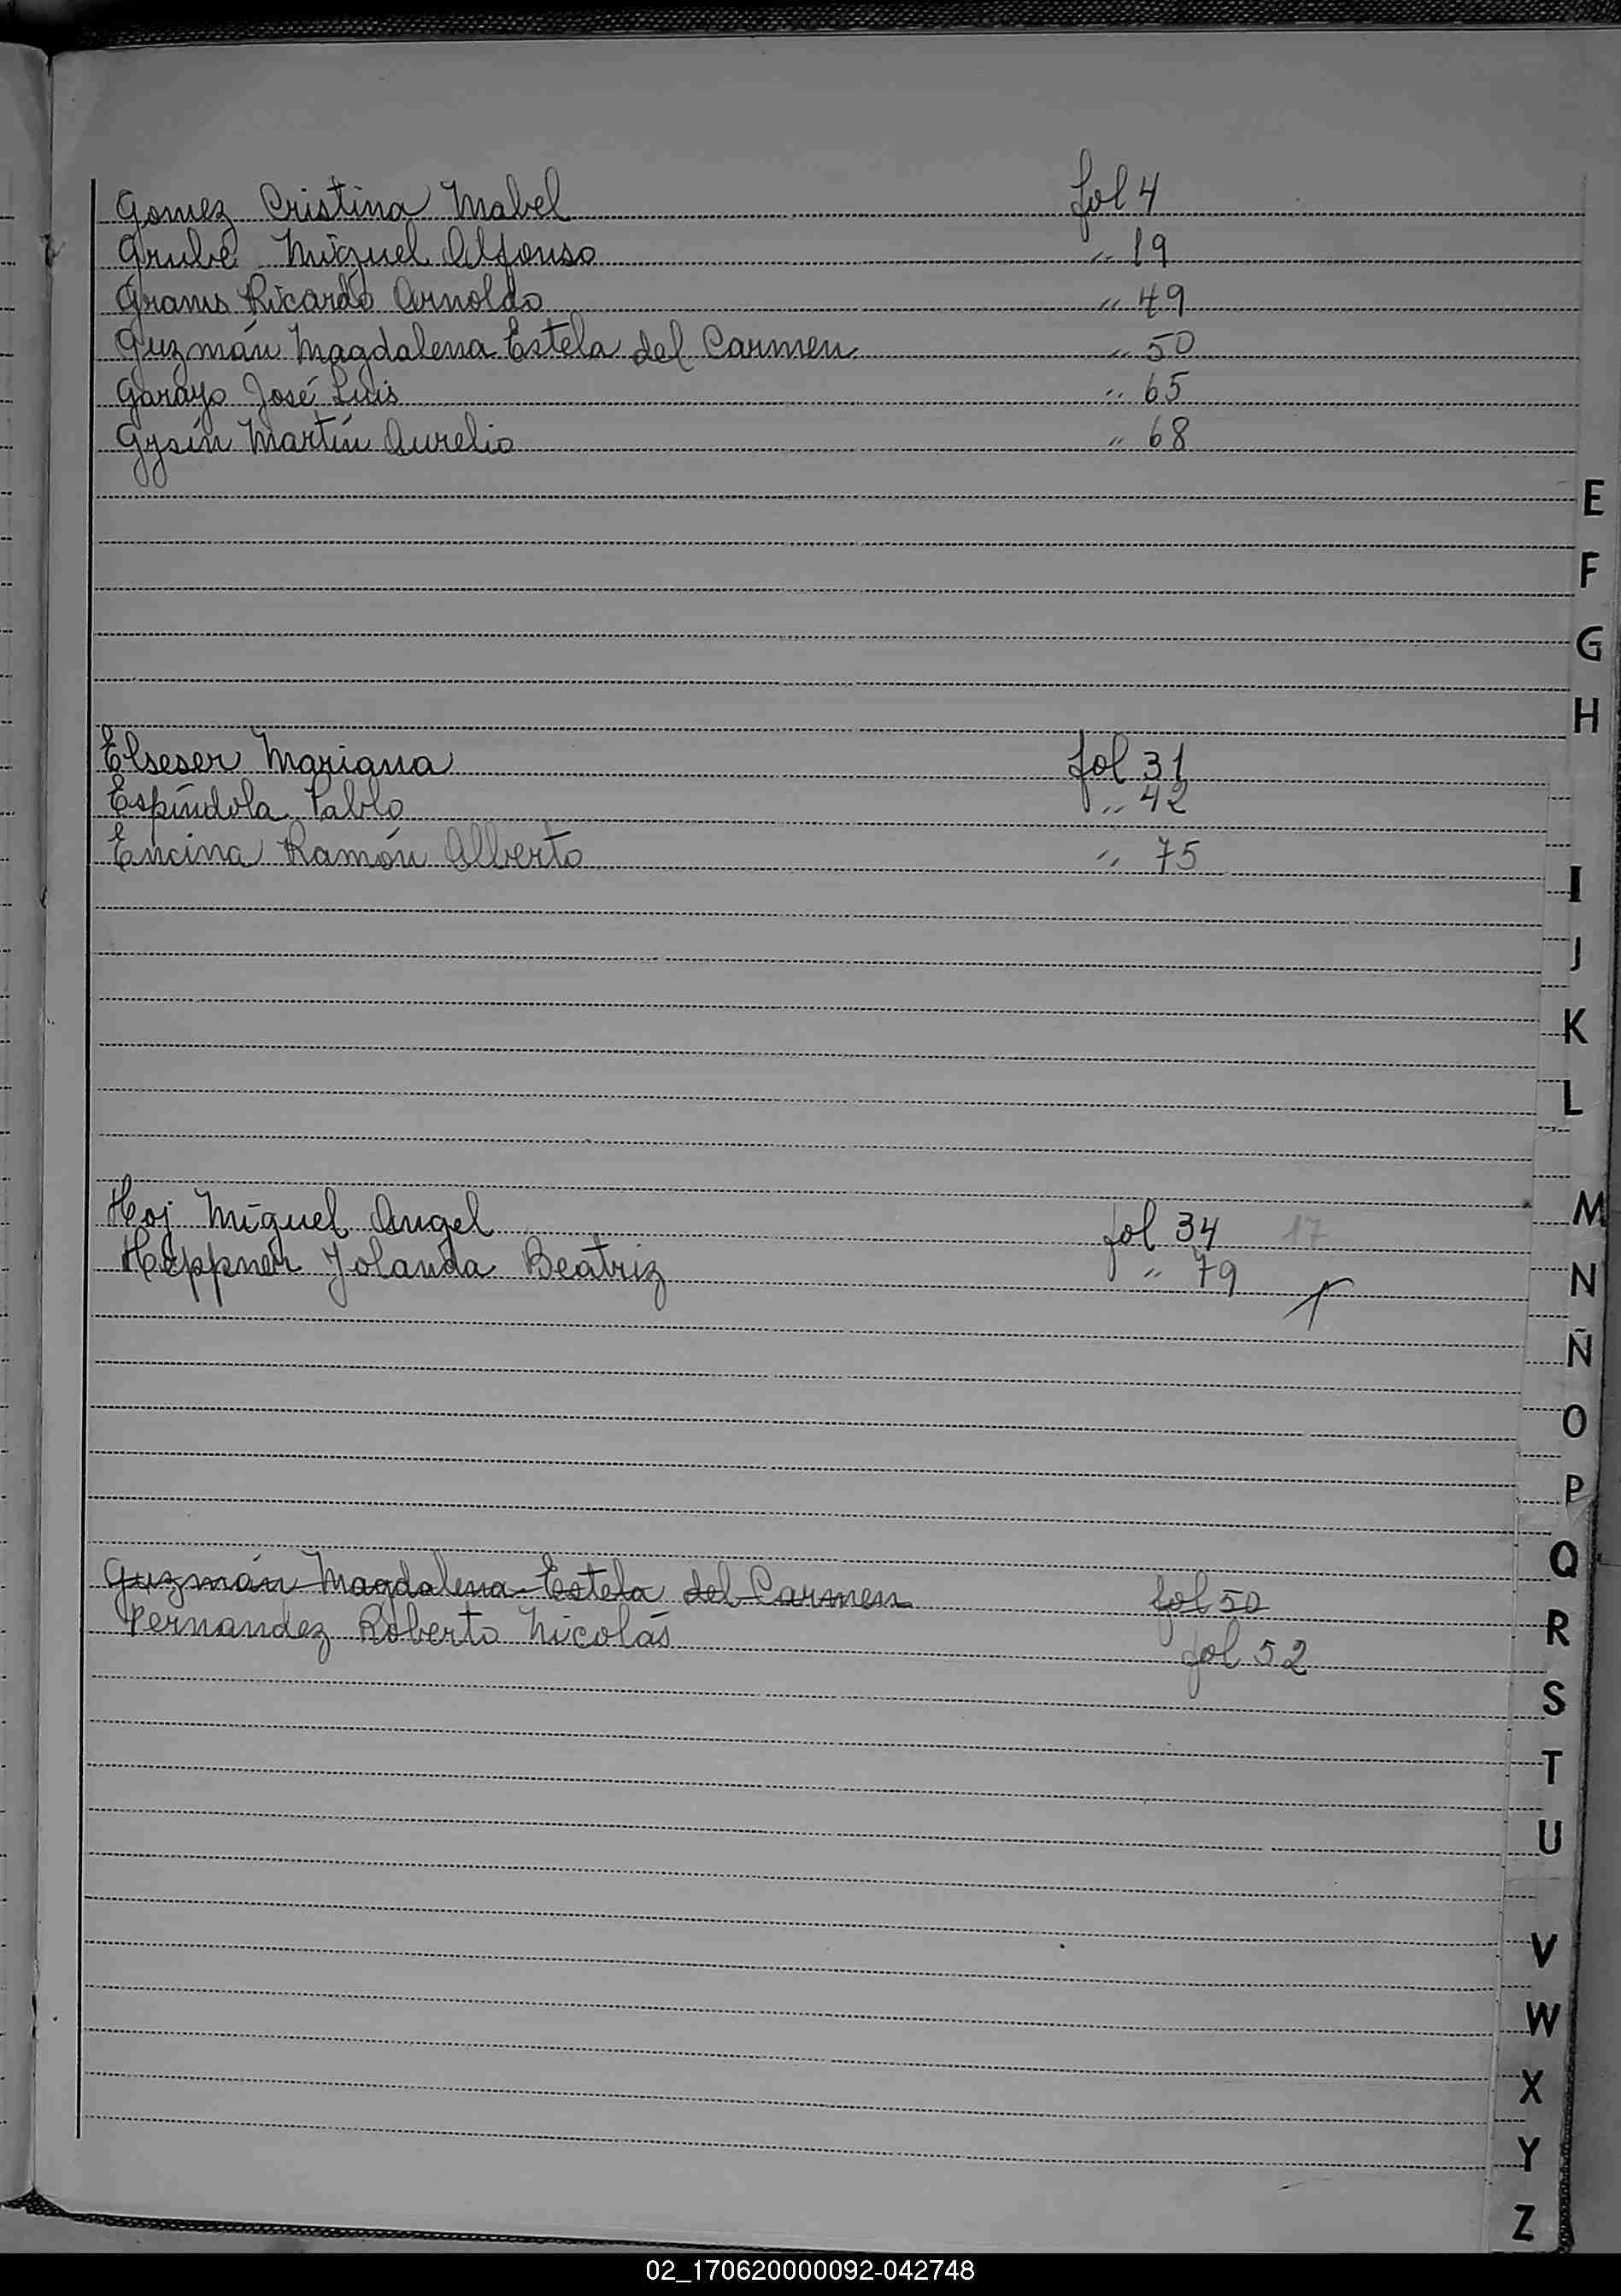 Gomez Cristina Mabel fol 4
Grube Miguel Alfonso " 19
Grams Ricardo Arnoldo " 49
Guzmán Magdalena Estela del Carmen " 50
Garayo José Luis " 65
Gysín Martín Aurelio " 68
E
F
G
H
Elseser Mariana fol 31
Espíndola Pablo " 42
Encina Ramón Alberto " 75
I
J
K
L
Hoj Miguel Angel fol 34 17
Heppner Yolanda Beatriz " 79
M
N
Ñ
O
P
Q
Guzmán Magdalena Estela del Carmen fol 50
Fernandez Roberto Nicolás fol 52
R
S
T
U
V
W
X
Y
Z
02_170620000092-042748